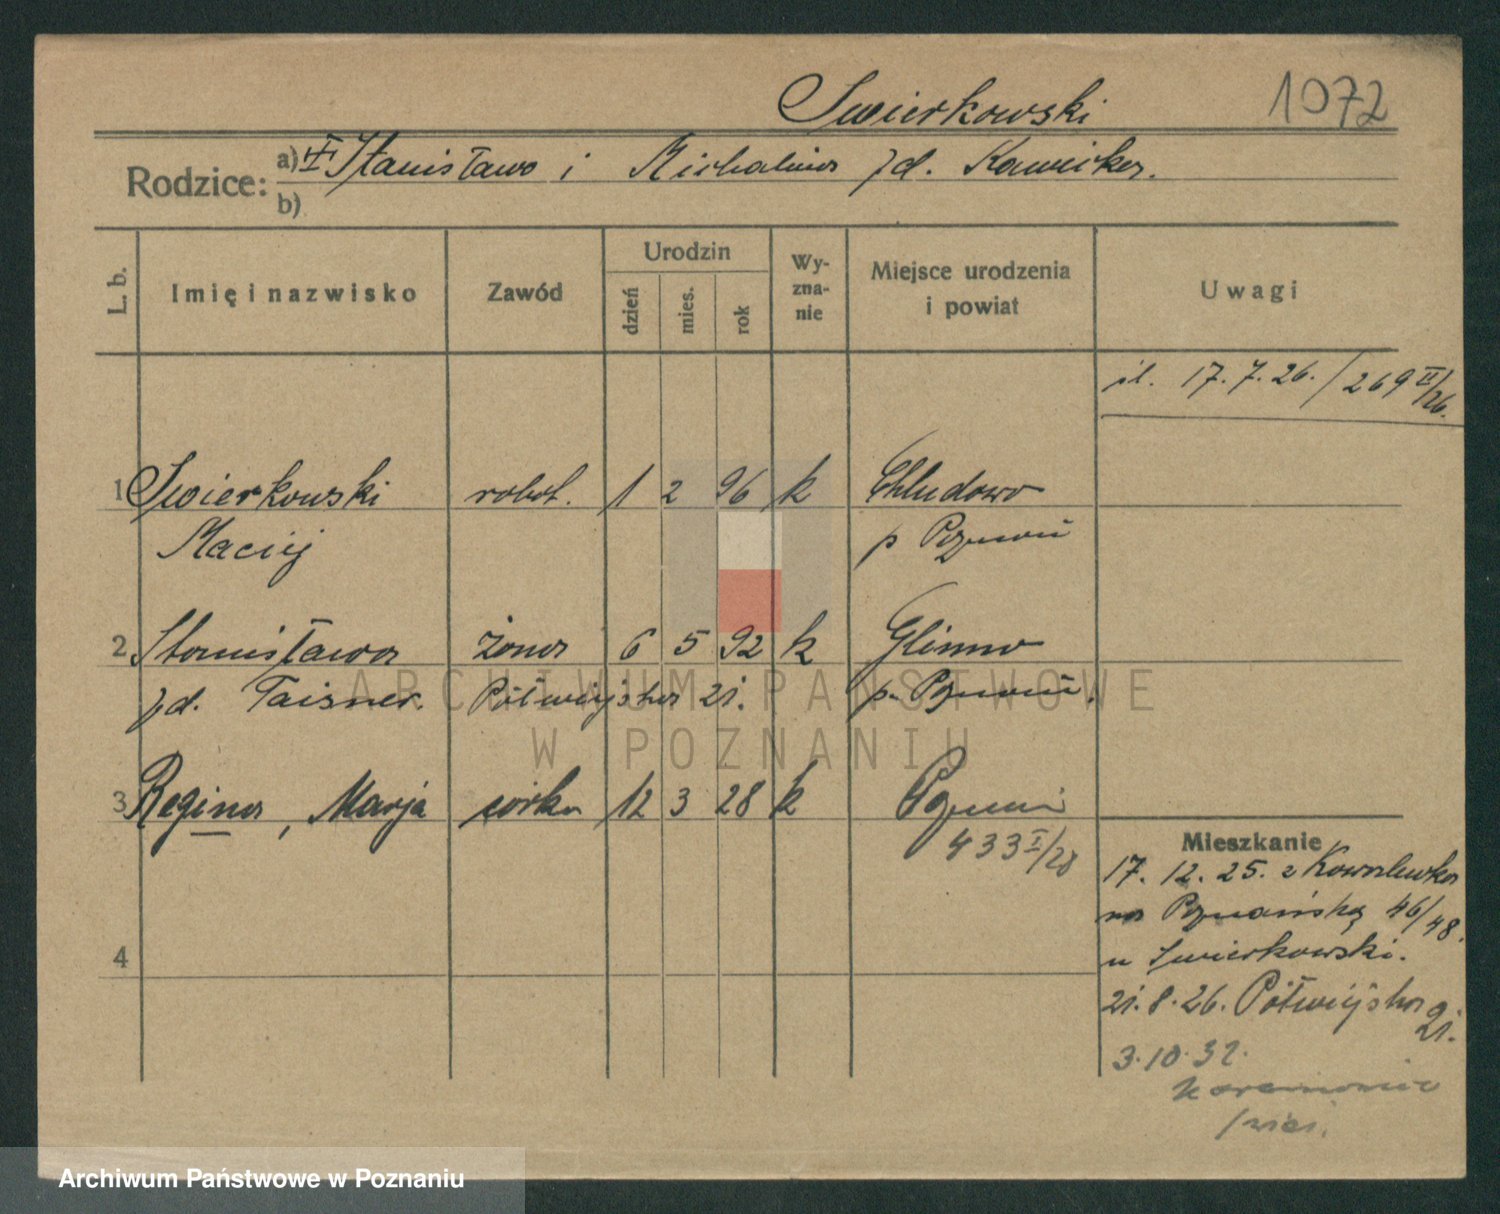 Swierkowski 1072
Rodzice: a) Stanisława i Michalina zd. Kawicka.
b)
L. b. Imię i nazwisko Zawód Urodzin dzień mies. rok Wy-zna-nie Miejsce urodzenia i powiat Uwagi
17. 7. 26. / 269 II/26.
1 Swierkowski robot. 1 2 96 k Chludowo
Maciej p Poznań
2 Stanisława żona 6 5 92 k Glinno
zd. Taisner. Półwiejska 21. p. Poznań.
ARCHIWUM PAŃSTWOWE
W POZNANIU
3 Regina, Marja córka 12 3 28 k Poznań
433 I/28
Mieszkanie
17. 12. 25. z Kowalewka
na Poznańską 46/48.
4
u Swierkowski.
21. 8. 26. Półwiejska 21.
3. 10. 32.
Archiwum Państwowe w Poznaniu